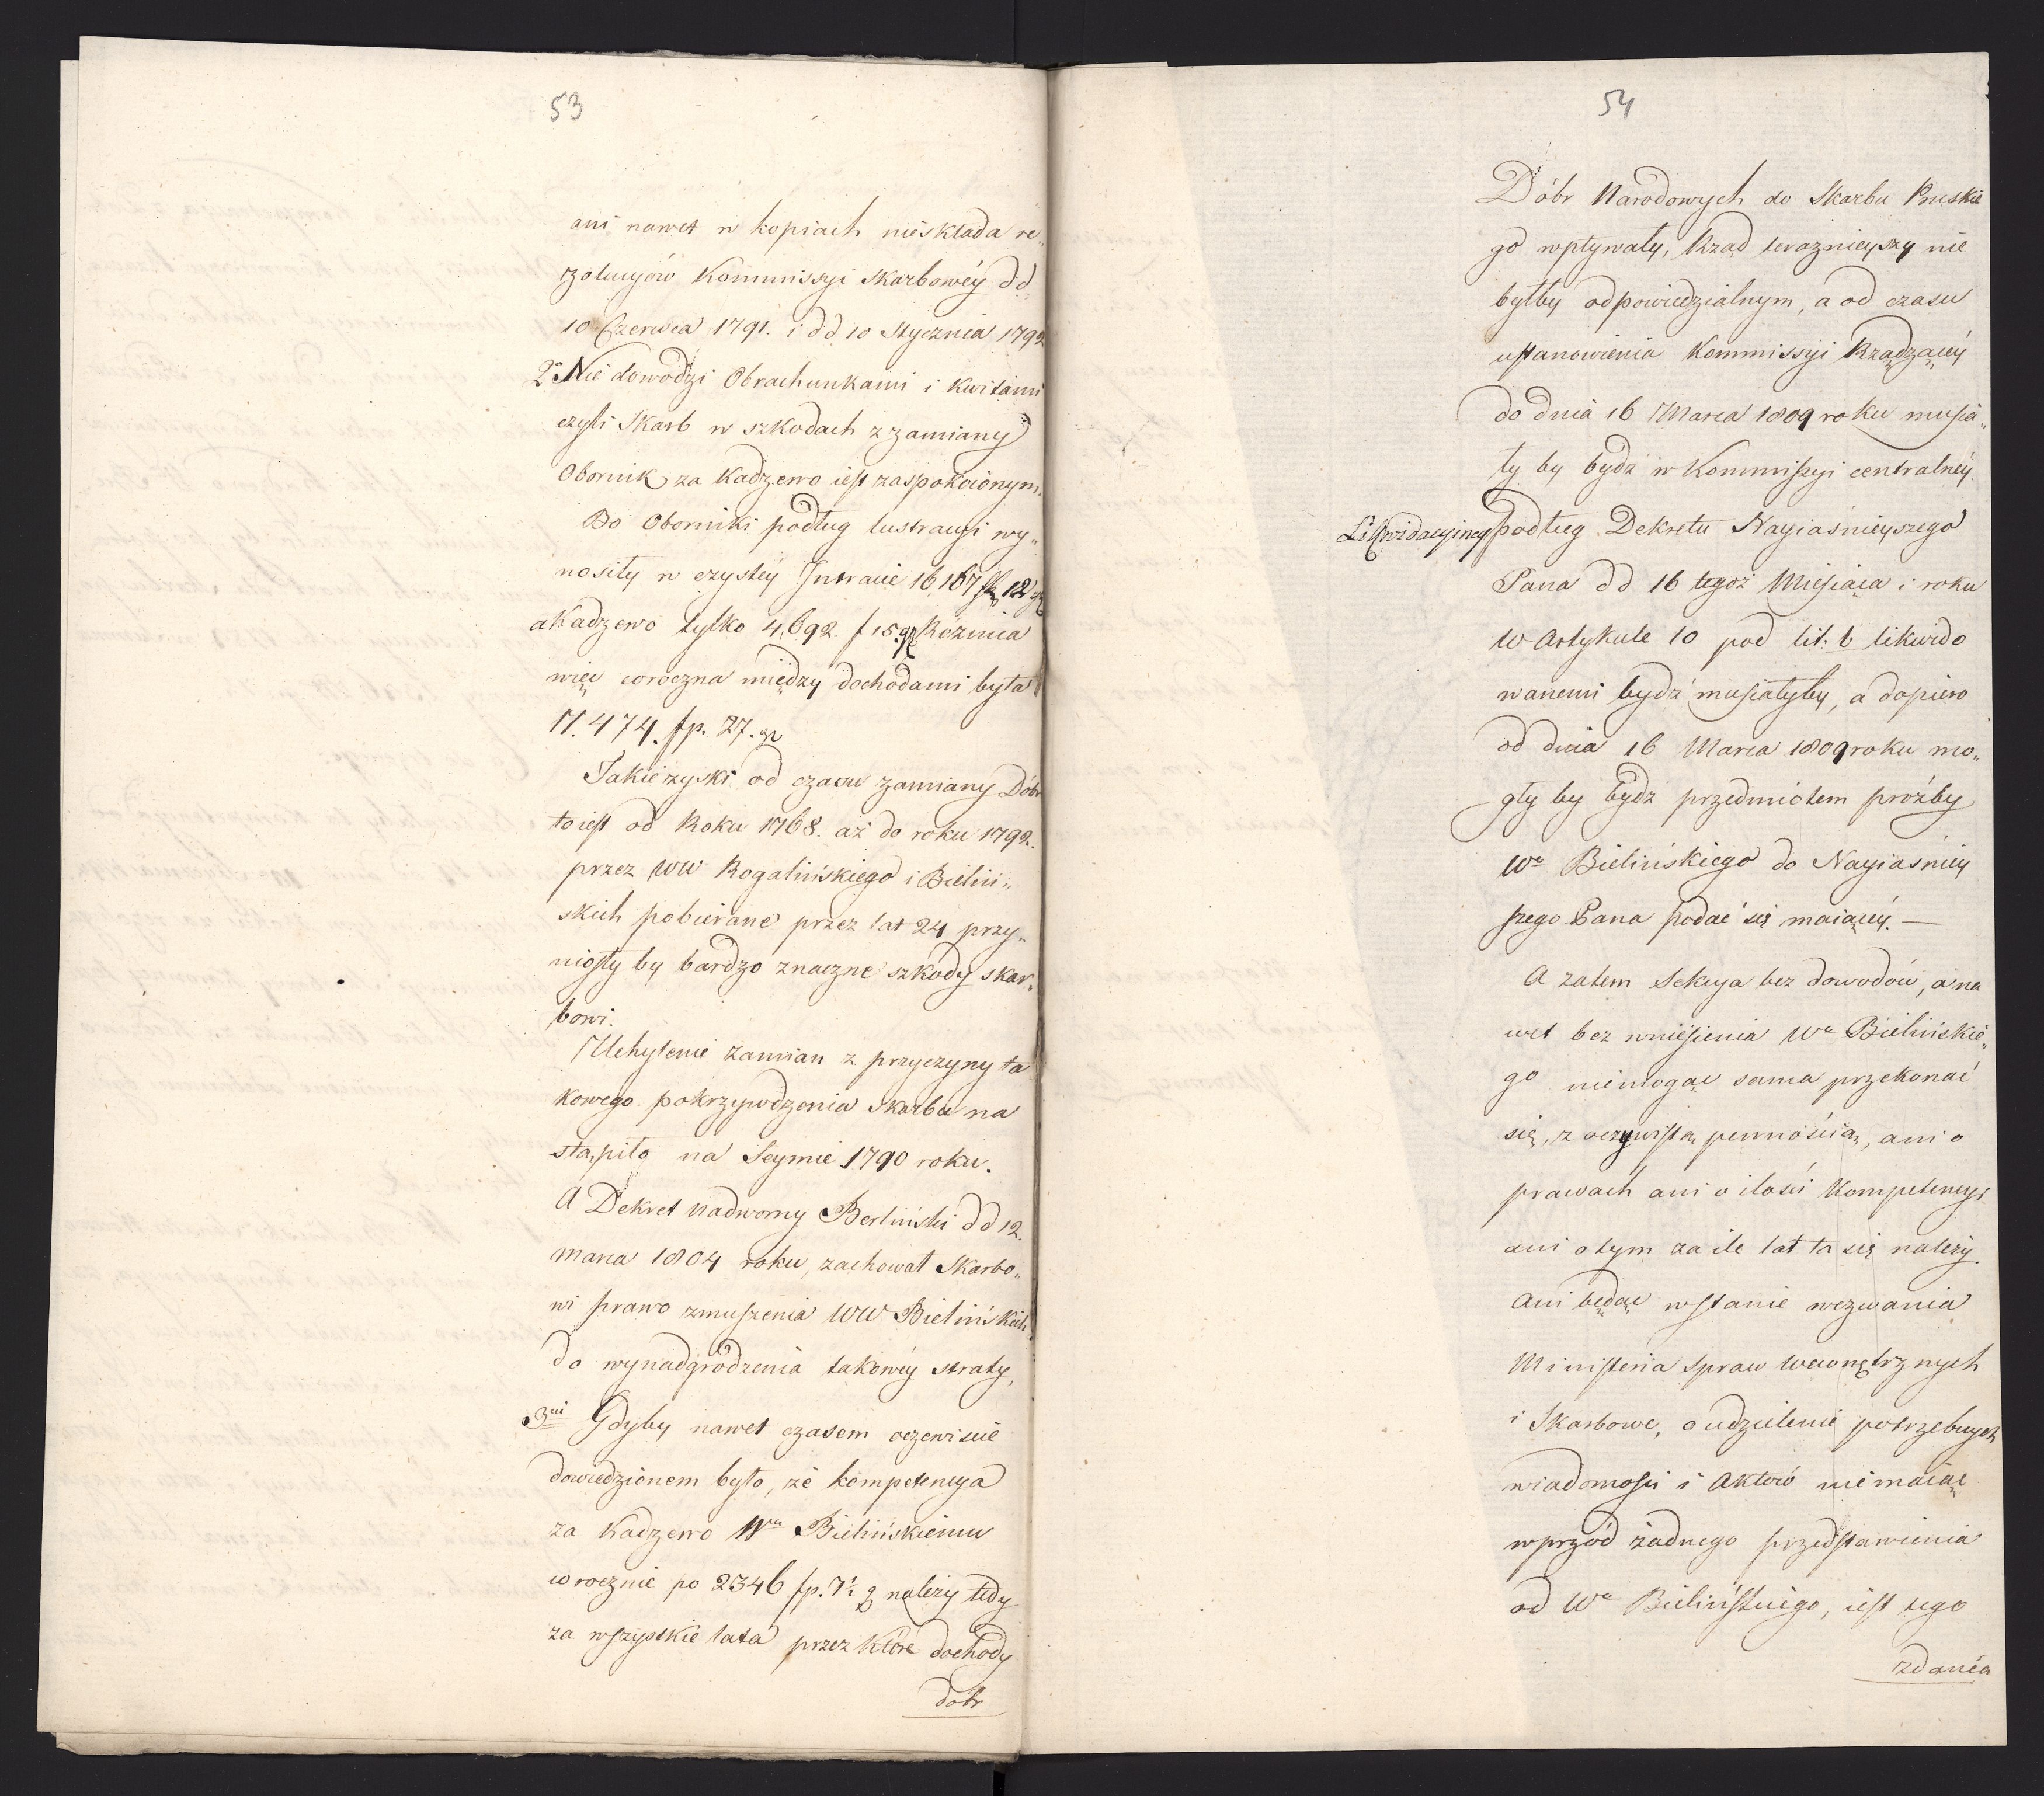 53
ani nawet w kopiach nieskłada re„
zolucyów Kommissyi Skarbowéy dd
10 Czerwca 1791. i dd 10 Stycznia 1792
2º Nie dowodzi Obrachunkami i Kwitami
czyli Skarb w szkodach z zamiany
Obornik za Kadzewo iest zaspokoionym.
Bo Oborniki podług lustracyi wy„
nosiły w czystéy Intracie 16,167 fp 12 gr
a Kadzewo tylko 4,692. f 15. gr Roznica
więc coroczna między dochodami była
11.474. fp. 27. gr
Takie zyski od czasu zamiany Dóbr
to iest od Roku 1768. aż do roku 1792.
przez WW Rogalińskiego i Bieliń„
skich pobierane przez lat 24 przy„
niosły by bardzo znaczne szkody skar„
bowi.
Uchylenie zamian z przyczyny ta
kowego pokrzywdzenia Skarbu na
stąpiło na Seymie 1790 roku.
A Dekret nadworny Berliński dd 12.
marca 1804 roku, zachował Skarbo„
wi prawo zmuszenia WW Bielińskich
do wynadgrodzenia takowéy straty,
3ci Gdyby nawet czasem oczewiscie
dowiedzionem było, że kompetencya
za Kadzewo Wmu Bielińskiemu
corocznie po 2346 fp. 7½ g należy tedy
za wszystkie lata przez które dochody
dóbr
54
Dóbr Narodowych do Skarbu Pruskie
go wpływały, Rząd terazniejszy nie
byłby odpowiedzialnym, a od czasu
ustanowienia Kommissyi Rządzącéy
do dnia 16 Marca 1809 roku musia„
ły by bydź w Kommissyi centralnéy
Likwidacyjney podług Dekretu Nayiaśnieyszego
Pana dd 16 tegoż Miesiąca i roku
w Artykule 10 pod lit: b likwido
wanemi bydź musiałyby, a dopiero
od dnia 16 Marca 1809 roku mo„
gły by bydz przedmiotem prośby
Wo Bielińskiego do Nayiasniey
szego Pana podać się maiącéy. —
A zatem Sekcya bez dowodów, a na
wet bez wniesienia Wo Bielińskie„
go niemogąc sama przekonać
się, z oczywistą pewnością, ani o
prawach ani o ilości Kompetencyi
ani o tym za ile lat ta się należy.
Ani będąc w stanie wezwania
Ministeria Spraw Wewnętrznych
i Skarbowe, o udzielenie potrzebnych
wiadomości i Aktów nie maiąc
wprzód żadnego przedstawienia
od Wo Bielińskiego, iest tego
zdania